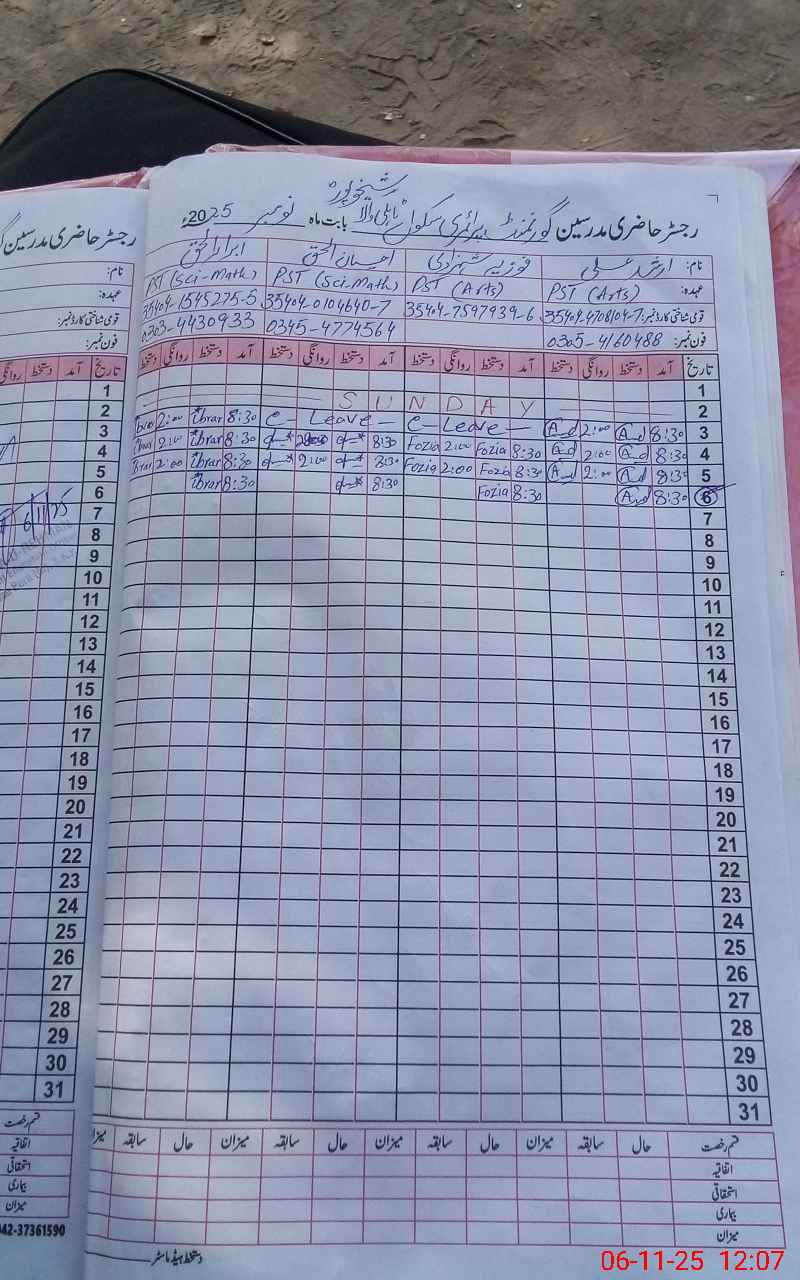 شیخوپورہ
رجسٹر حاضری مدرسین گورنمنٹ پرائمری سکول بابت ماہ نومبر 2025ء
نام: ارشد علی فوزیہ شہزادی احسان الحق ابرار الحق
عہدہ: PST (Arts) PST (Arts) PST (Sci-Math) PST (Sci-Math)
قومی شناختی کارڈ نمبر: 35404-4708104-7 35404-7597939-6 35404-0104640-7 35404-1545275-5
فون نمبر: 0305-4160488 0345-4774564 0303-4430933
تاریخ آمد دستخط روانگی دستخط آمد دستخط روانگی دستخط آمد دستخط روانگی دستخط آمد دستخط روانگی دستخط
1
2 SUNDAY
3 8:30 2:00 C-Leave- C-Leave- 8:30 ibrar 2:00
4 8:30 2:00 8:30 Fozia 2:00 Fozia 8:30 8:30 ibrar 2:00
5 8:30 2:00 8:30 Fozia 2:00 Fozia 8:30 2:00 8:30 ibrar 2:00
6 8:30 8:30 Fozia 8:30 8:30 ibrar
7
8
9
10
11
12
13
14
15
16
17
18
19
20
21
22
23
24
25
26
27
28
29
30
31
قسم رخصت حال سابقہ میزان حال سابقہ میزان حال سابقہ میزان حال سابقہ میزان
اتفاقیہ
استحقاقی
بیماری
میزان
دستخط ہیڈ ماسٹر
رجسٹر حاضری مدرسین
نام:
عہدہ:
قومی شناختی کارڈ نمبر:
فون نمبر:
تاریخ آمد دستخط روانگی
1
2
3
4
5
6
7 6/11/25
8
9
10
11
12
13
14
15
16
17
18
19
20
21
22
23
24
25
26
27
28
29
30
31
قسم رخصت
اتفاقیہ
استحقاقی
بیماری
میزان
042-37361590
06-11-25 12:07